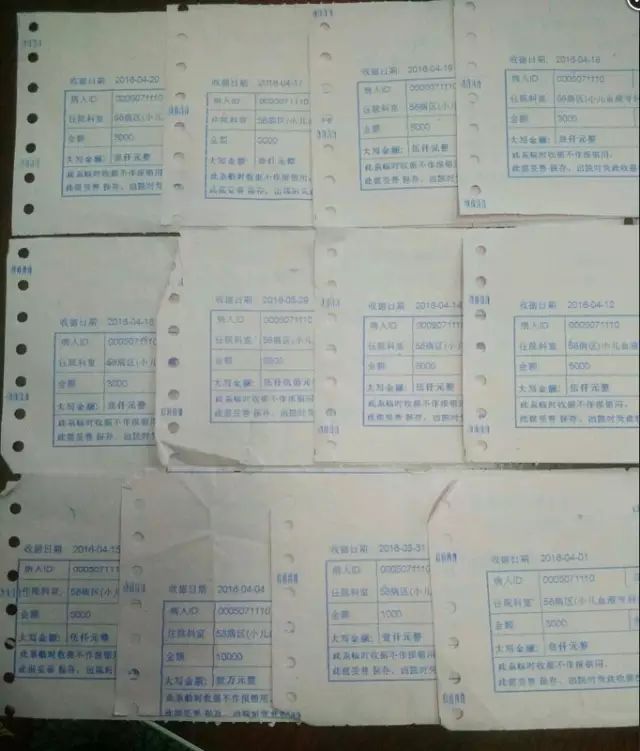 收据日期 2016-04-20
病人ID 0005071110
住院科室 58病区(小儿
金额 5000
大写金额: 伍仟元整
此条临时收据不作报销用.
此据妥善 保存, 出院时
收据日期 2016-04-17
病人ID 0005071110
住院科室 58病区(小儿
金额
大写金额:
此条临时收据不作报销用
此据妥善 保存, 出院时
收据日期: 2016-04-19
病人ID 0005071110
住院科室 58病区(小儿
金额 5000
大写金额: 伍仟元整
此条临时收据不作报销用.
此据妥善 保存, 出院时凭
收据日期: 2016-04-18
病人ID 0005071110
住院科室 58病区(小儿血液专科
金额
大写金额:
此条临时收据不作报销用.
此据妥善 保存, 出院时凭此收据
收据日期 2016-04-
病人ID 0005071110
住院科室 58病区(小
金额
大写金额:
此条临时收据不作报销
此据妥善 保存, 出院时
收据日期 2016-03-29
病人ID 0005071110
住院科室 58病区(小儿
金额
大写金额:
此条临时收据不作报销用
此据妥善 保存, 出院时
收据日期 2016-04-14
病人ID 0005071110
住院科室 58病区(小儿
金额 5000
大写金额: 伍仟元整
此条临时收据不作报销用.
此据妥善 保存, 出院时凭
收据日期 2016-04-12
病人ID 0005071110
住院科室 58病区(小儿
金额 5000
大写金额: 伍仟元整
此条临时收据不作报销用.
此据妥善 保存, 出院时凭此收
收据日期 2016-04-15
病人ID 0005071110
住院科室: 58病区(小
金额 5000
大写金额: 伍仟元整
此条临时收据不作报
此据妥善 保存, 出院
收据日期 2016-04-04
病人ID 0005071110
住院科室 58病区(小儿
金额 10000
大写金额: 壹万元整
此条临时收据不作报销用
此据妥善 保存, 出院时凭
收据日期 2016-03-31
病人ID 0005071110
住院科室 58病区(小
金额 1000
大写金额: 壹仟元整
此条临时收据不作报销用
此据妥善 保存, 出院时
收据日期 2016-04-01
病人ID 0005071110
住院科室: 58病区(小儿血液专科
金额
大写金额:
此条临时收据不作报销用.
此据妥善 保存, 出院时凭此收据